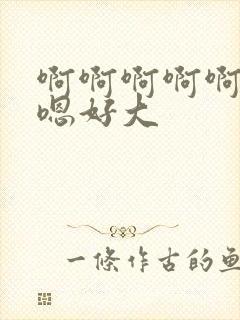 啊啊啊啊啊
嗯好大
一条作古的鱼